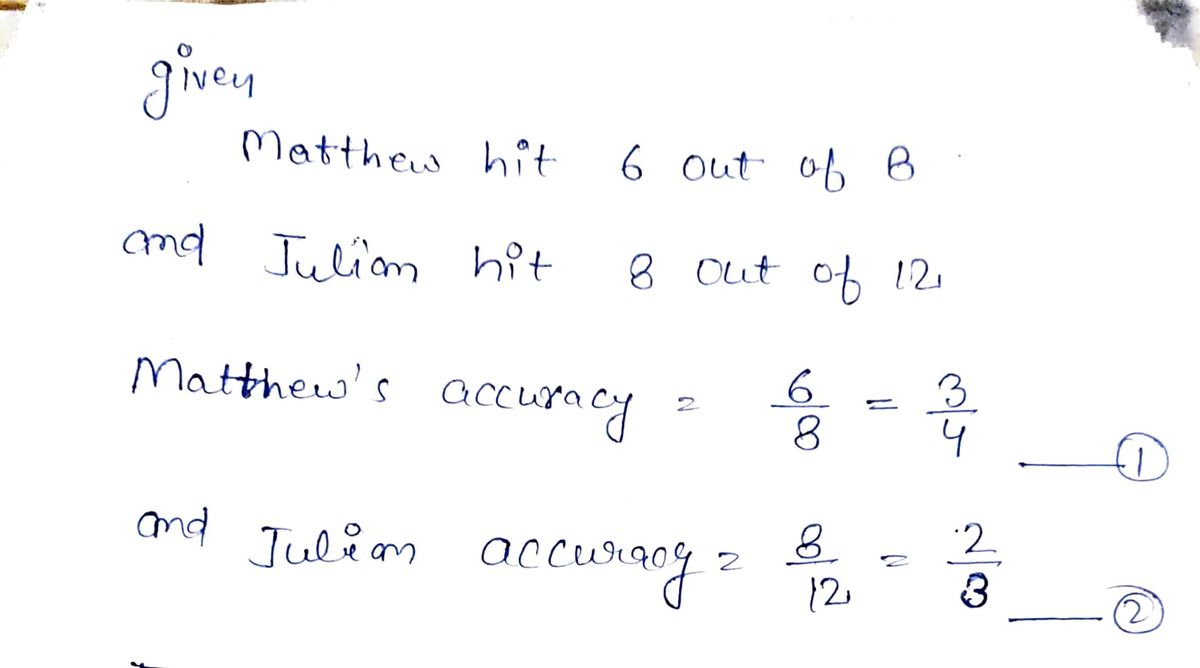 given
Matthew hit 6 out of 8
and Julian hit 8 out of 12
Matthew's accuracy = 6/8 = 3/4 ——①
and Julian accuracy = 8/12 = 2/3 ——②